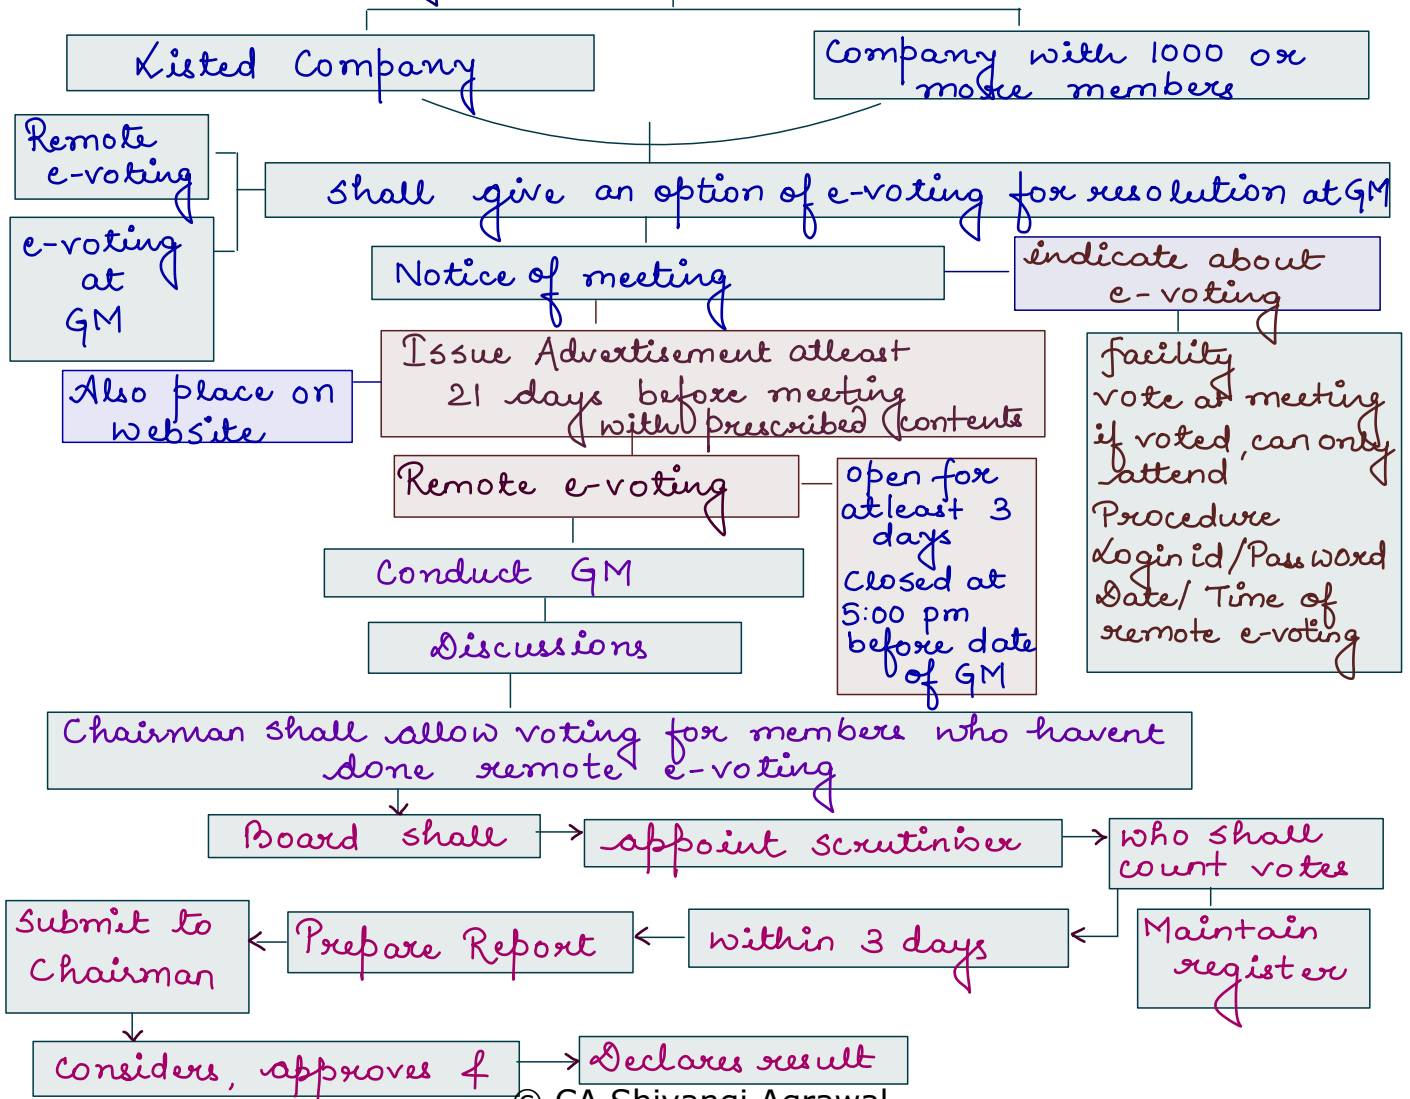 Listed Company
Company with 1000 or
more members
Remote
e-voting
e-voting
at
GM
shall give an option of e-voting for resolution at GM
Notice of meeting
indicate about
e-voting
Issue Advertisement atleast
21 days before meeting
with prescribed contents
Also place on
website
facility
vote at meeting
if voted, can only
attend
Procedure
Login id/Password
Date/Time of
remote e-voting
Remote e-voting
open for
atleast 3
days
Closed at
5:00 pm
before date
of GM
Conduct GM
Discussions
Chairman shall allow voting for members who havent
done remote e-voting
Board shall
appoint scrutiniser
who shall
count votes
Maintain
register
within 3 days
Prepare Report
Submit to
Chairman
considers, approves &
Declares result
© CA Shivangi Agrawal